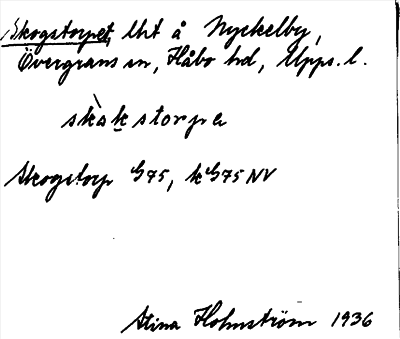 Skogstorpet, lht å Nyckelby,
Övergrans sn, Håbo hd, Upps. l.
skàkstorpa
Skogstorp G75, kG75 NV
Stina Holmström 1936